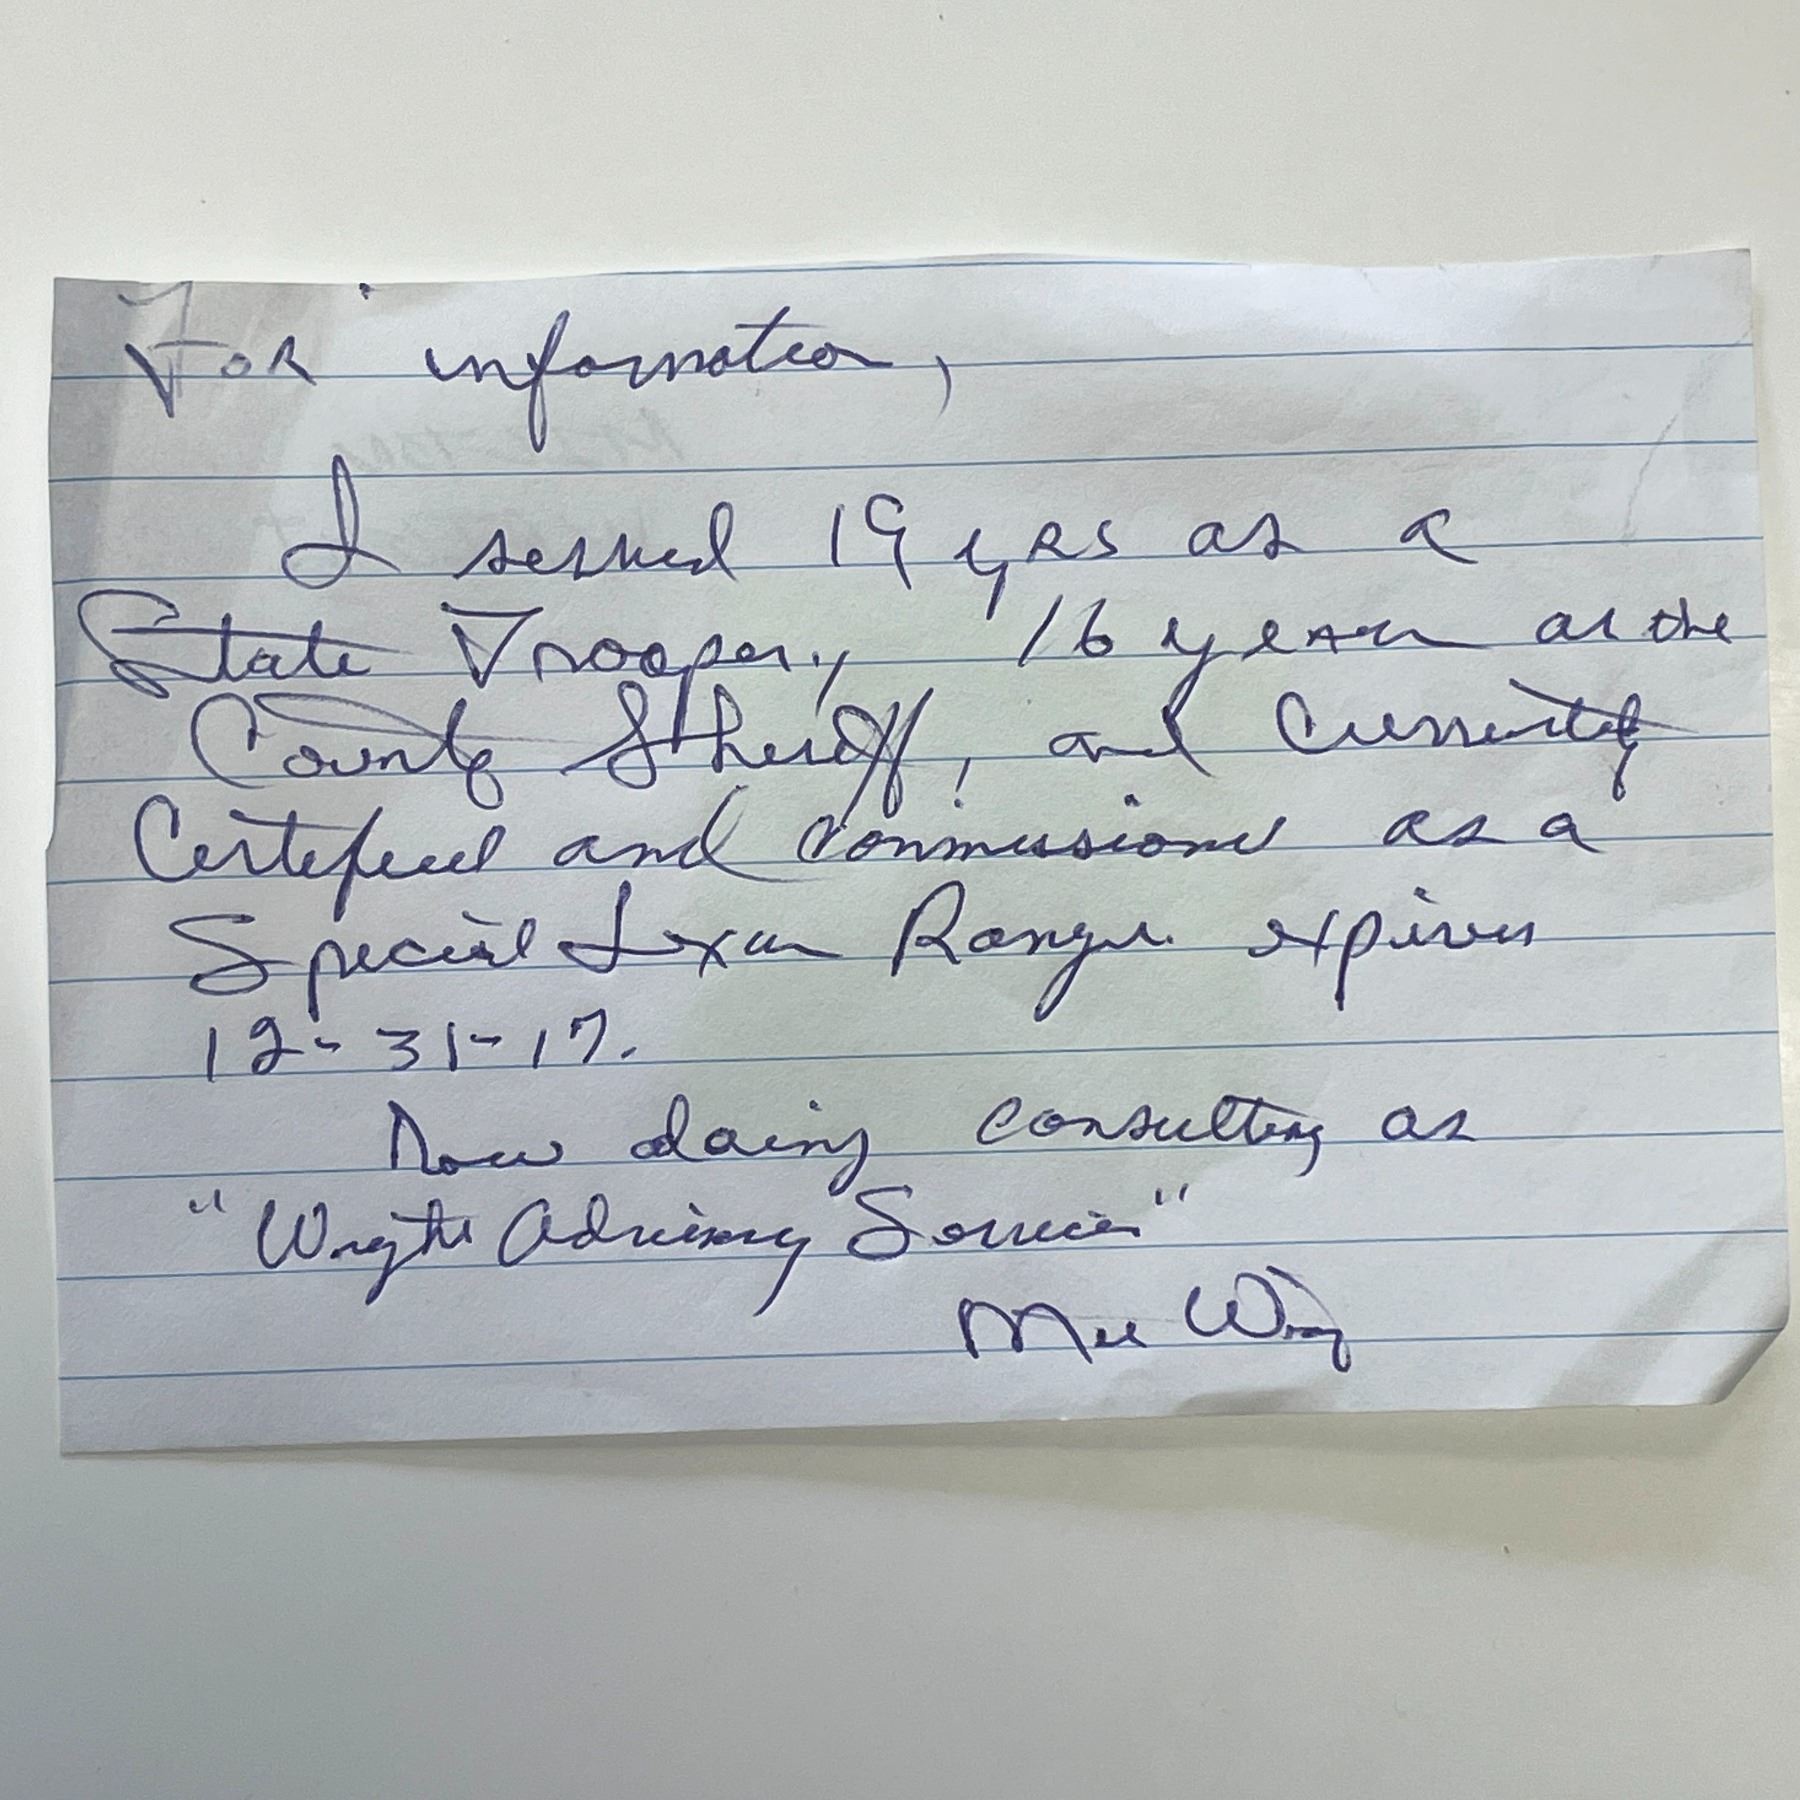 For information,
I served 19 yrs as a
State Trooper, 16 years as the
County Sheriff, and Currently
Certified and commissioned as a
Special Texas Ranger. expires
12-31-17.
Now doing consulting as
"Wright Advisory Services"